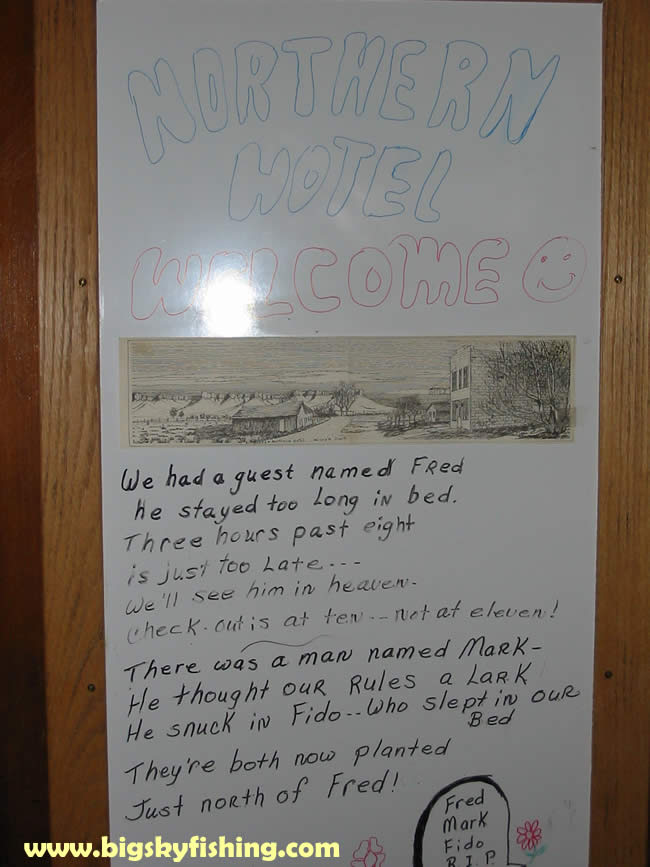 NORTHERN
HOTEL
WELCOME
We had a guest named Fred
He stayed too Long in bed.
Three hours past eight
is just too Late---
We'll see him in heaven-
Check-out is at ten--not at eleven!
There was a man named Mark-
He thought our Rules a Lark
He snuck in Fido--Who slept in our
Bed
They're both now planted
Just north of Fred!
Fred
Mark
Fido
R.I.P.
www.bigskyfishing.com